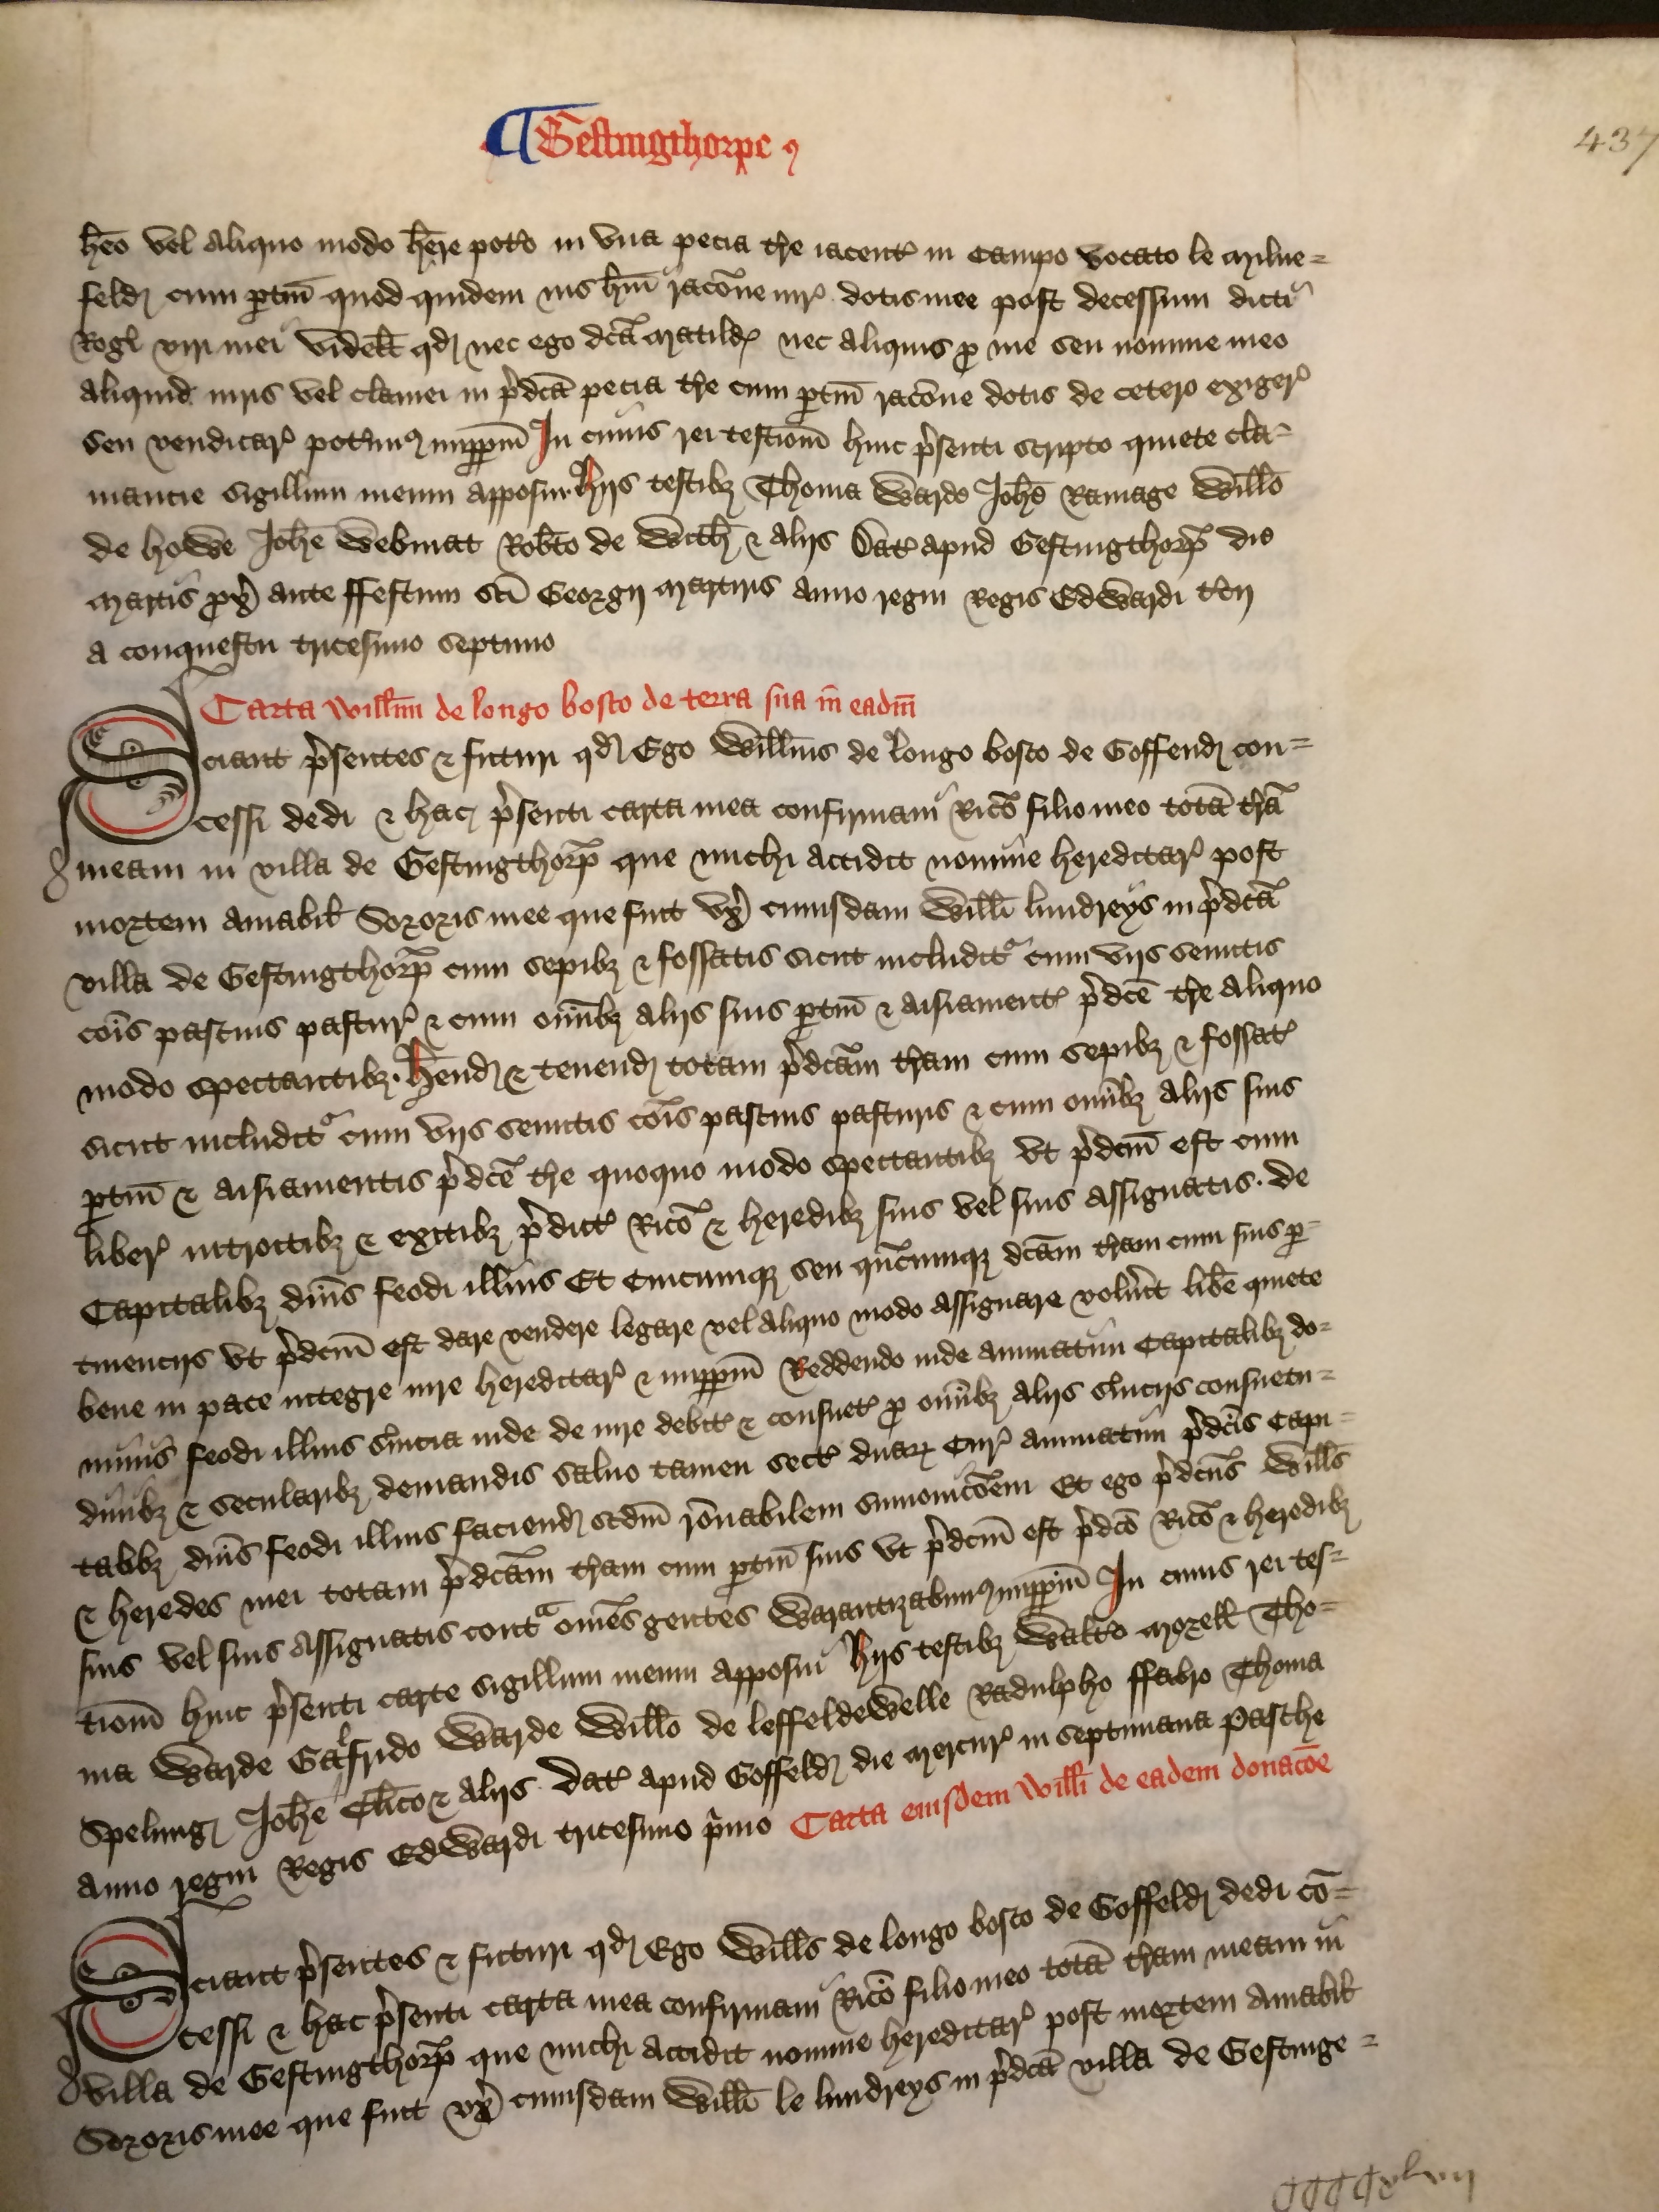 ¶ Gestingthorpe
437
heo vel aliquo modo here pot'o in una pecia t're iacent' in campo vocato le Milne=
feld cum p'tin' quod quidem ius h'ui r'acone iur' dotis mee post decessum dicti
Rog'i viri mei videl't qd nec ego dc'a Matild' nec aliquis p' me seu nomine meo
aliquid iuris vel clamei in p'dc'a pecia t're cum p'tin' r'acone dotis de cetero exiger'
seu vendicar' pot'imus imp'p'm In cuius rei testiom' huic p'senti scripto quiete cla=
mancie sigillum meum apposui. Hijs testib; Thoma Warde Joh'e Ramage Will'o
de Howe Joh'e Webmat Rob'to de Wich' & alijs Dat' apud Gestingthorp' die
Martis p'x' ante ffestum s'ci Georgij Martiris anno regni Regis Edwardi t'cij
a conquestu tricesimo septimo
Carta Will'mi de longo bosco de terra sua in eadm
Sciant p'sentes & futuri qd Ego Will'ms de longo bosco de Goffend con=
cessi dedi & hac p'senti carta mea confirmaui Ric'o filio meo tota' t'ra'
meam in villa de Gestingthorp' que michi accidit nomine hereditar' post
mortem Amabil' Sororis mee que fuit ux' cuiusdam Will'i lundreys in p'dc'a
villa de Gestingthorp' cum sepib; & fossatis sicut includit' cum vijs semitis
co'is pascuis pastur' & cum om'ib; alijs suis p'tin' & aisiament' p'dc'e t're aliquo
modo spectantib;. Hend' & tenend' totam p'dc'am t'ram cum sepib; & fossat'
sicut includit' cum vijs semitis co'is pascuis pasturis & cum om'ib; alijs suis
p'tin' & aisiamentis p'dc'e t're quoquo modo spectantib; ut p'dcm' est cum
liber' introitib; & exitib; p'dict' Ric'o & heredib; suis vel suis assignatis. de
Capitalib; d'nis feodi illius Et cuicumq; seu qu'cumq; dc'am t'ram cum suis p'=
tinencijs ut p'dcm' est dare vendere legare vel aliquo modo assignare volu'it lib'e quiete
bene in pace integre iure hereditar' & imp'p'm Reddendo inde annuatim Capitalib; do=
minis feodi illius s'uicia inde de iure debit' & consuet' p' om'ib; alijs s'uicijs consuetu=
dinib; & secularib; demandis saluo tamen sect' duar' Cur' annuatim p'dc'is Capi=
talib; d'nis feodi illius faciend' scdm' r'onabilem sumonic'oem Et ego p'dc'us Will's
& heredes mei totam p'dc'am t'ram cum p'tin' suis ut p'dcm' est p'dc'o Ric'o & heredib;
suis vel suis assignatis cont'a om'es gentes Warantizabimus imp'p'm In cuius rei tes=
tiom' huic p'senti carte sigillum meum apposui Hijs testib; Walt'o Morell Tho=
ma Warde Galfrido Warde Will'o de leffeldewelle Radulpho ffabro Thoma
Speling Joh'e Cl'ico & alijs. Dat' apud Goffeld' die Mercur' in septimana Pasche
anno regni Regis Edwardi tricesimo p'mo Carta eiusdem Will'i de eadem donac'oe
Sciant p'sentes & futuri qd Ego Will's de longo bosco de Goffeld' dedi co'=
cessi & hac p'senti carta mea confirmaui Ric'o filio meo tota' t'ram meam in
villa de Gestingthorp' que michi accidit nomine hereditar' post mortem Amabil'
Sororis mee que fuit ux' cuiusdam Will'i le lundreys in p'dc'a villa de Gestinge=